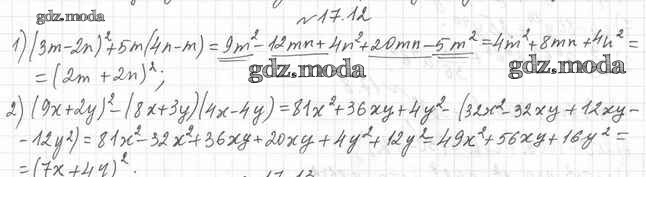 gdz.moda
№17.12
1) (3m-2n)²+5m(4n-m) = 9m²-12mn+4n²+20mn-5m² = 4m²+8mn+4n² =
gdz.moda gdz.moda
= (2m+2n)²;
2) (9x+2y)²-(8x+3y)(4x-4y) = 81x²+36xy+4y²-(32x²-32xy+12xy-
-12y²) = 81x²-32x²+36xy+20xy+4y²+12y² = 49x²+56xy+16y² =
= (7x+4y)².